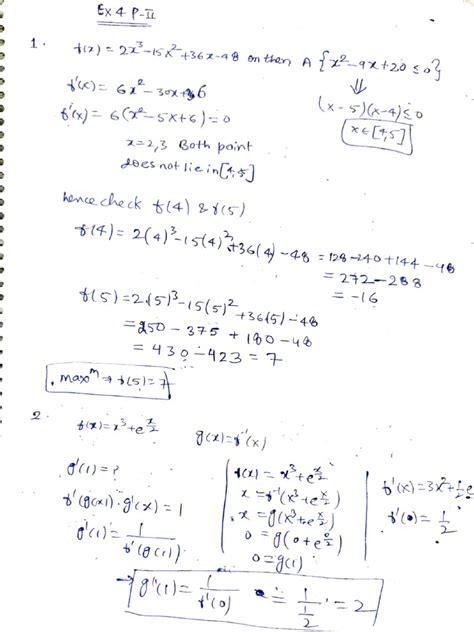 Ex 4 P-II
1. f(x) = 2x³-15x²+36x-48 on then A {x²-9x+20 ≤0}
f'(x) = 6x²-30x+36
(x-5)(x-4)≤0
f'(x) = 6(x²-5x+6)=0
x∈[4,5]
x=2,3 Both point
does not lie in [4,5]
hence check f(4) & f(5)
f(4) = 2(4)³-15(4)²+36(4)-48 = 128-240+144-48
= 272-288
= -16
f(5) = 2(5)³-15(5)²+36(5)-48
= 250 - 375 + 180 -48
= 430 -423 = 7
. maxᵐ ⇒ f(5) = 7
2. f(x) = x³+e^(x/2) g(x) = f⁻¹(x)
g'(1) = ?
f'(g(x))·g'(x) = 1
g'(1) = 1/f'(g(1))
f(x) = x³+e^(x/2)
x = f⁻¹(x³+e^(x/2))
x = g(x³+e^(x/2))
0 = g(0+e^(0/2))
0 = g(1)
f'(x) = 3x²+1/2 e
f'(0) = 1/2
→ g'(1) = 1/f'(0) = 1/(1/2) = 2